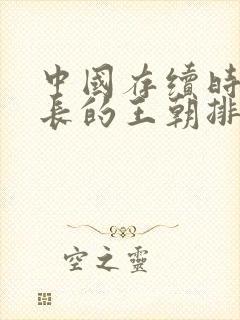 中國存續時
長的王朝排
空之靈